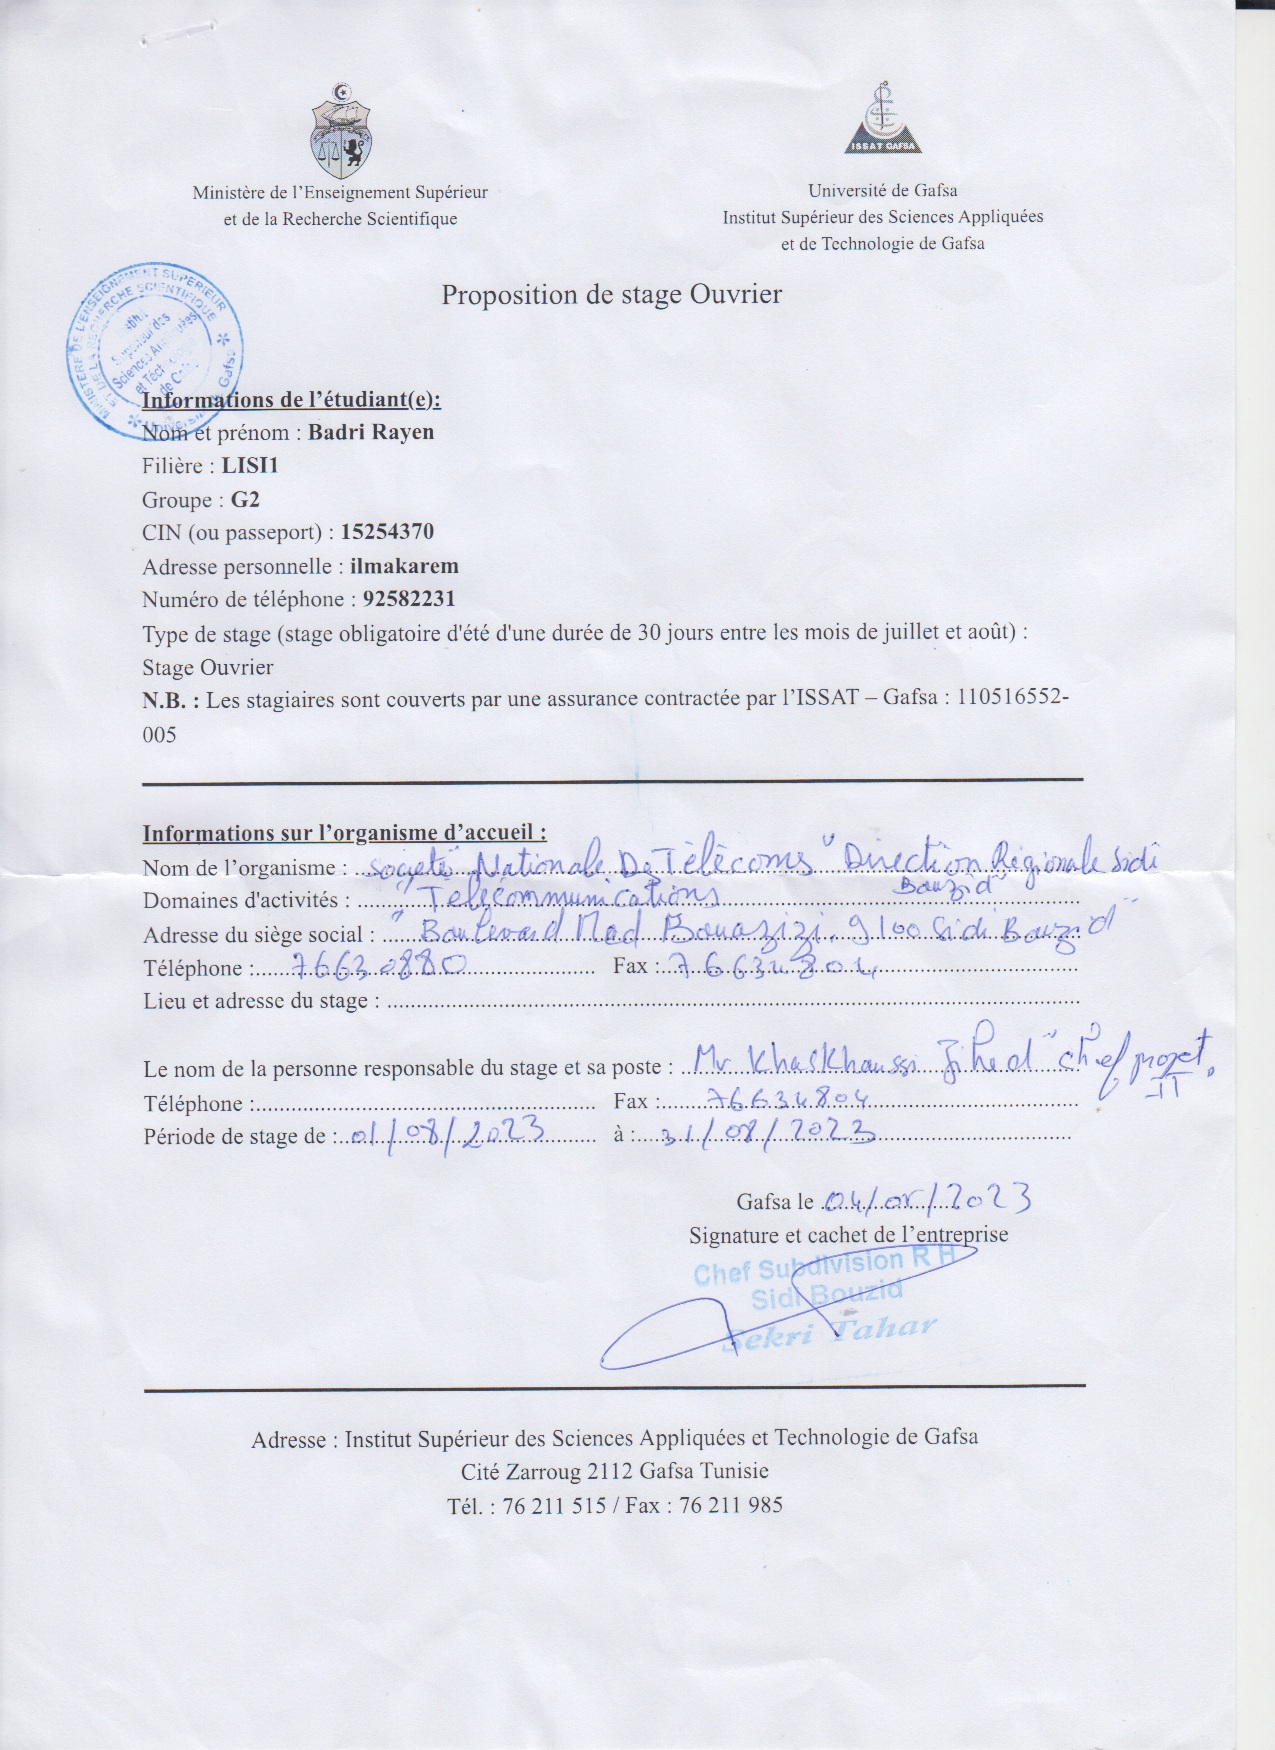 Ministère de l'Enseignement Supérieur
et de la Recherche Scientifique
ISSAT GAFSA
Université de Gafsa
Institut Supérieur des Sciences Appliquées
et de Technologie de Gafsa
MINISTERE DE L'ENSEIGNEMENT SUPERIEUR
ET DE LA RECHERCHE SCIENTIFIQUE
Supérieur des
Sciences
de
Gafsa
Proposition de stage Ouvrier
Informations de l'étudiant(e):
Nom et prénom : Badri Rayen
Filière : LISI1
Groupe : G2
CIN (ou passeport) : 15254370
Adresse personnelle : ilmakarem
Numéro de téléphone : 92582231
Type de stage (stage obligatoire d'été d'une durée de 30 jours entre les mois de juillet et août) :
Stage Ouvrier
N.B. : Les stagiaires sont couverts par une assurance contractée par l'ISSAT – Gafsa : 110516552-
005
Informations sur l'organisme d'accueil :
Nom de l'organisme : Société Nationale De Télécoms "Direction Régionale Sidi
Bouzid"
Domaines d'activités : "Télécommunications
Adresse du siège social : "Boulevard Med Bouazizi, 9100 Sidi Bouzid"
Téléphone : 76630880 Fax : 76634804
Lieu et adresse du stage :
Le nom de la personne responsable du stage et sa poste : Mr Khaskhoussi Jihed "chef projet
Téléphone : Fax : 76634804
Période de stage de : 01/08/2023 à : 31/08/2023
Gafsa le 04/05/2023
Signature et cachet de l'entreprise
Chef Subdivision R H
Sidi Bouzid
Sekri Tahar
Adresse : Institut Supérieur des Sciences Appliquées et Technologie de Gafsa
Cité Zarroug 2112 Gafsa Tunisie
Tél. : 76 211 515 / Fax : 76 211 985